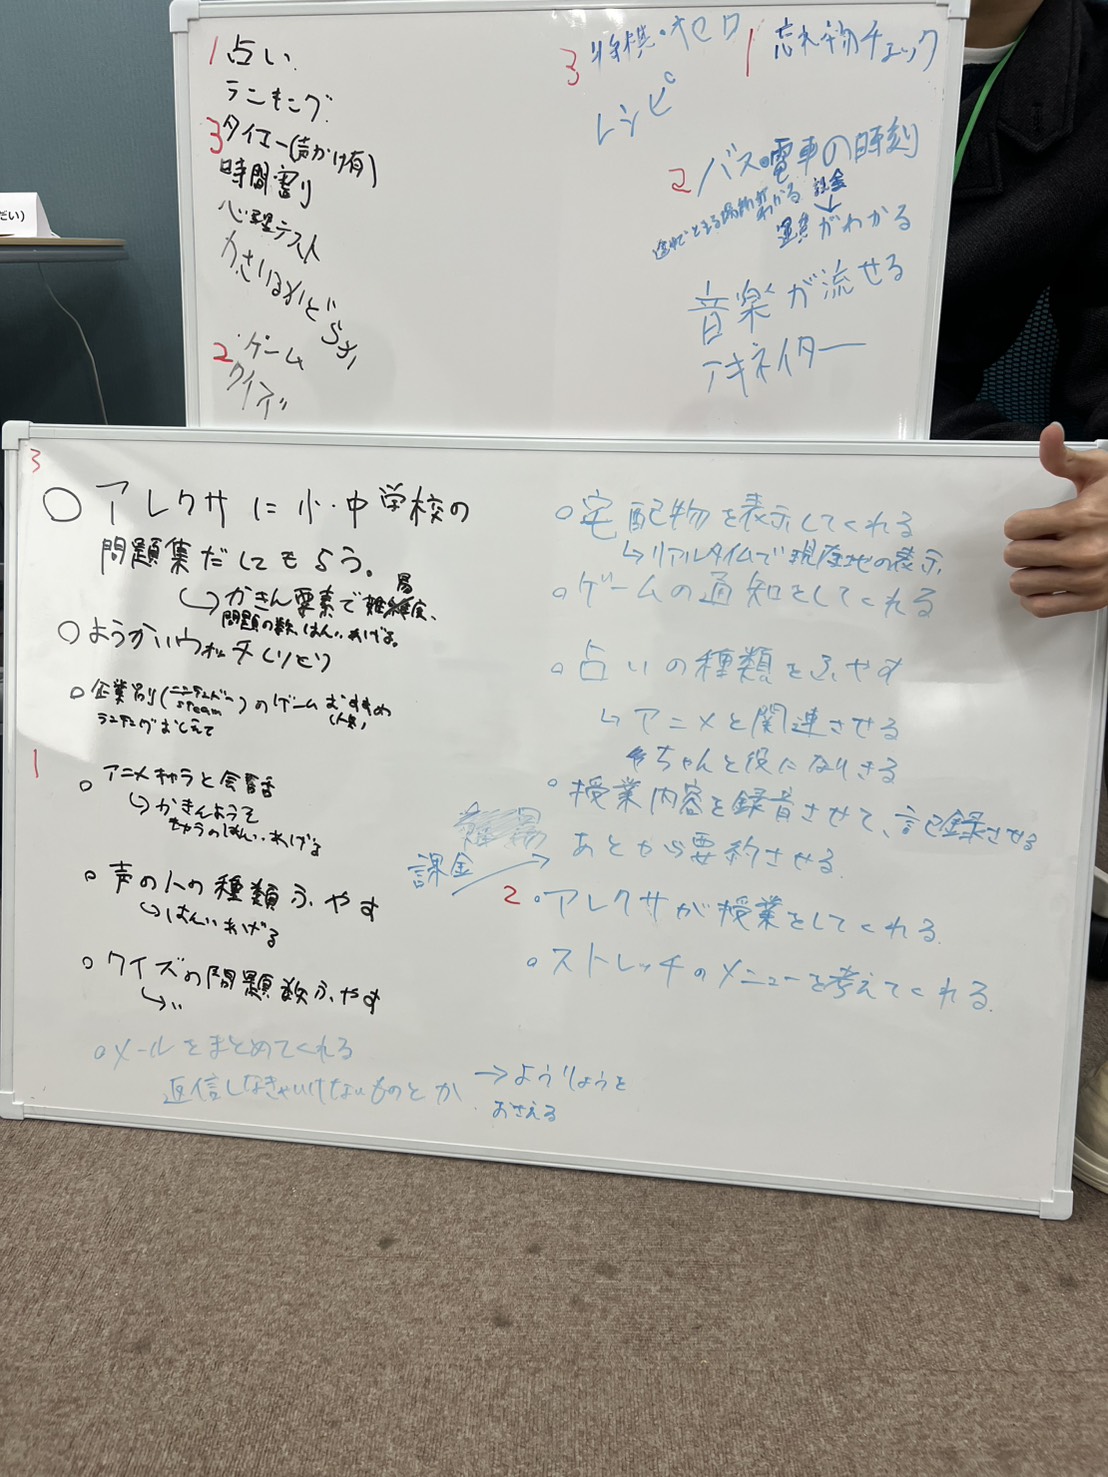 だい)
1 占い
ランキング
3 タイマー(声かけ有)
時間割り
心理テスト
かさいるかどうか
・ゲーム
2 クイズ
3 将棋・オセロ
レシピ
1 忘れ物チェック
2 バス・電車の時刻
途中でとまる場所がわかる
料金
運賃がわかる
音楽が流せる
アキネイター
3
○アレクサに小・中学校の
問題集だしてもらう。
↳かきん要素で難易度、
問題の数、はんいあげる。
○ようかいウォッチしりとり
○企業別(ニンテンドーsteam)のゲームおすすめ
ランキングおしえて
1
○アニメキャラと会話
↳かきんようそ
キャラのはんいあげる
○声の人の種類ふやす
↳はんいあげる
○クイズの問題数ふやす
↳〃
○メールをまとめてくれる
返信しなきゃいけないものとか
→ようりょうを
おさえる
○宅配物を表示してくれる
↳リアルタイムで現在地の表示
○ゲームの通知をしてくれる
○占いの種類をふやす
↳アニメと関連させる
ちゃんと役になりきる
○授業内容を録音させて、記録させる
課金→あとから要約させる
2 ○アレクサが授業をしてくれる
○ストレッチのメニューを考えてくれる